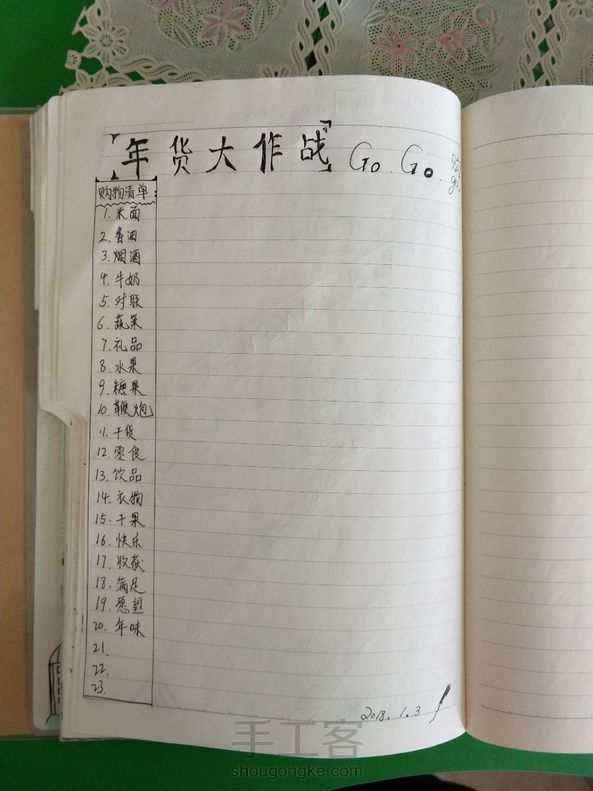 年货大作战 Go Go.
go.
购物清单
1. 米面
2. 香油
3. 烟酒
4. 牛奶
5. 对联
6. 蔬菜
7. 礼品
8. 水果
9. 糖果
10. 鞭炮
11. 干货
12. 零食
13. 饮品
14. 衣物
15. 干果
16. 快乐
17. 收获
18. 满足
19. 愿望
20. 年味
21.
22.
23.
2018.1.3
手工客
shougongke.com